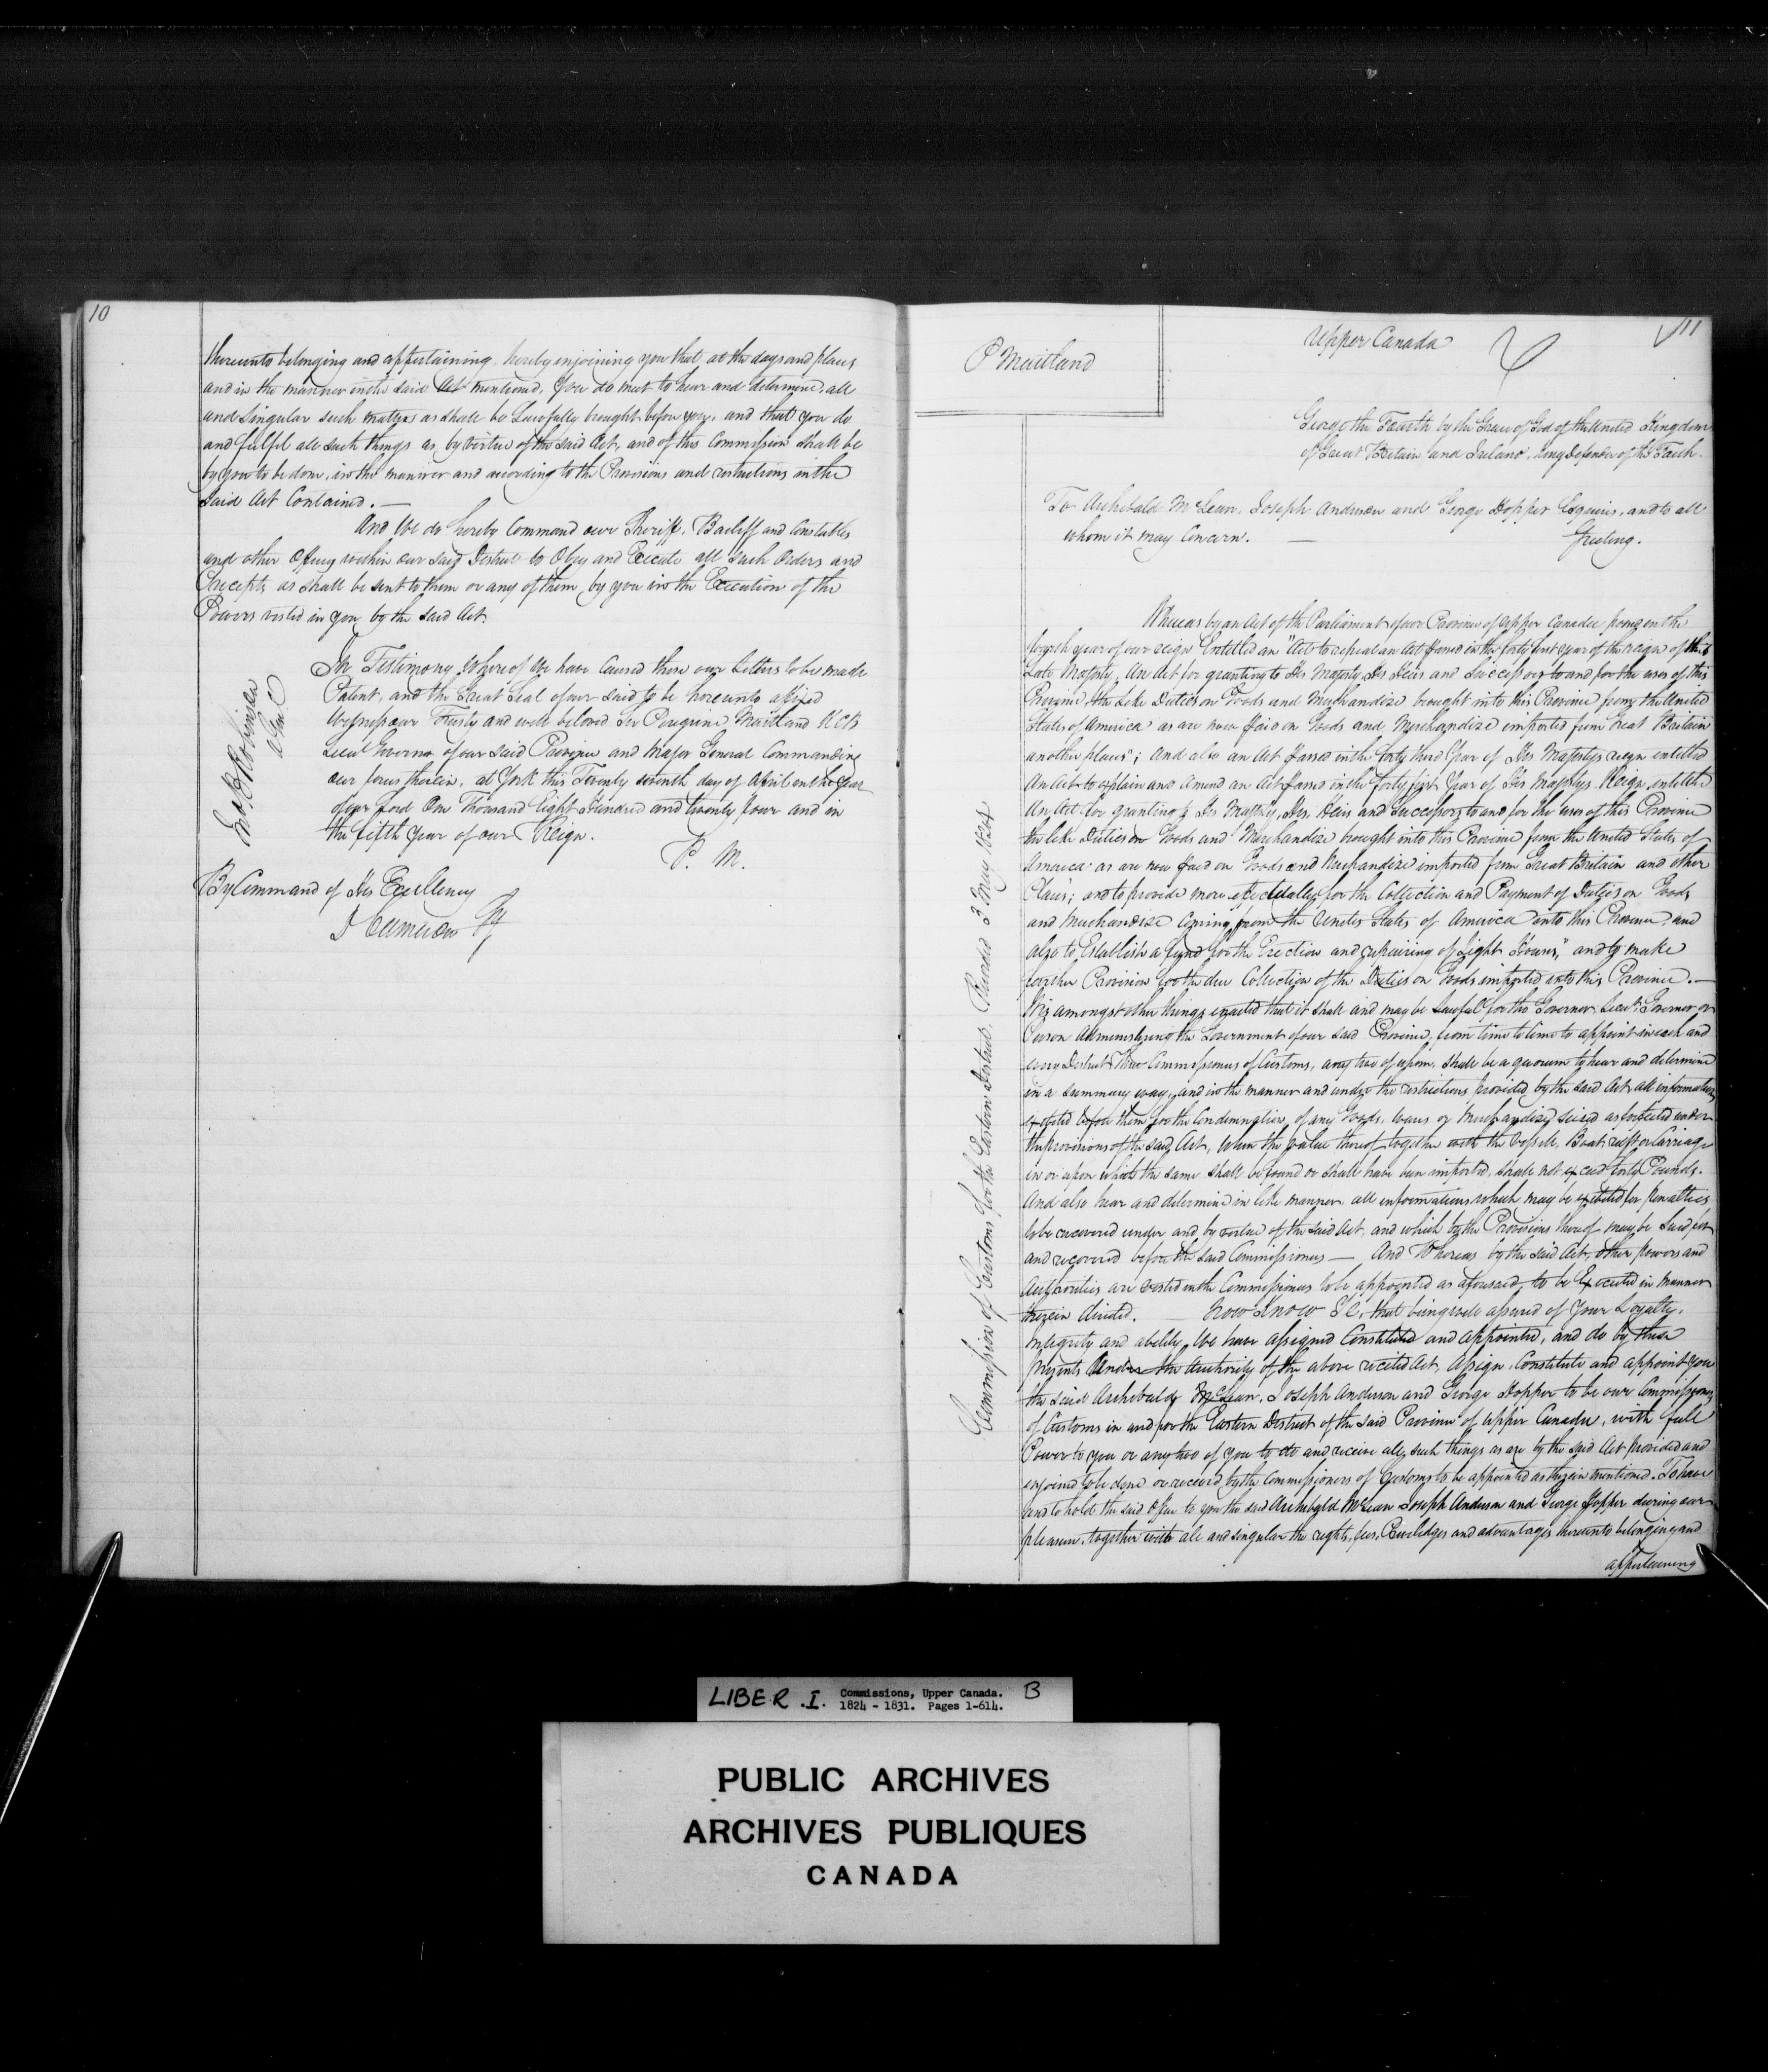 10
thereunto belonging and appertaining, hereby enjoining you that at the days and places
and in the manner in the said Act mentioned, You do meet to hear and determine, all
and singular such matters as shall be Lawfully brought before you, and that you do
and fulfil all such things as by virtue of the said Act, and of this Commission shall be
by you to be done, in the manner and according to the Provisions and restrictions in the
said Act Contained. —
And We do hereby Command our Sheriff, Bailiff and Constables
and other Officers within our said District to Obey and Execute all such Orders and
Precepts as shall be sent to them or any of them, by you in the Execution of the
Powers vested in you by the said Act.
In Testimony Whereof We have Caused these our Letters to be made
Patent, and the Great Seal of our said to be hereunto affixed
Witness our Trusty and well beloved Sir Peregrine Maitland KCB
Lieut Governor of our said Province and Major General Commanding
our forces therein, at York this Twenty seventh day of April in the Year
of our Lord One Thousand Eight Hundred and twenty four and in
the fifth Year of our Reign.
P. M.
Jno. B. Robinson
A. Gen.
By Command of His Excellency
D Cameron
11
P Maitland
Upper Canada
George the Fourth by the Grace of God of the United Kingdom
of Great Britain and Ireland, King Defender of the Faith.
To Archibald McLean, Joseph Anderson and George Hopper Esquires, and to all
whom it may Concern. — Greeting.
Commission of Customs for the Eastern District. Recorded 3 May 1824
Whereas by an Act of the Parliament of our Province of Upper Canada passed in the
fourth year of our reign Entitled an "Act to repeal an Act passed in the forty first year of the reign of the
Late Majesty, An Act for granting to His Majesty His Heirs and Successors to and for the uses of this
Province the Like Duties on Goods and Merchandize brought into this Province from the United
States of America as are now paid on Goods and Merchandize imported from Great Britain
and other places"; and also an Act passed in the forty third Year of His Majestys reign entitled
An Act to explain and Amend an Act passed in the forty first Year of His Majestys Reign, entitled
An Act for granting to His Majesty, His Heirs and Successors to and for the uses of this Province
the like Duties on Goods and Merchandize brought into this Province from the United States of
America as are now paid on Goods and Merchandize imported from Great Britain and other
Places; and to provide more effectually for the Collection and Payment of Duties on Goods
and Merchandize Coming from the United States of America into this Province and
also to Establish a fund for the Erection and repairing of Light Houses," and to make
further Provision for the due Collection of the Duties on Goods imported into this Province. —
It is amongst other things enacted that it shall and may be Lawful for the Governor Lieut. Governor or
Person Administering the Government of our said Province, from time to time to appoint in each and
every District Three Commissioners of Customs, any two of whom, shall be a quorum to hear and determine
in a summary way, and in the manner and under the restrictions provided by the said Act, all informations
exhibited before them for the Condemnation of any Goods, wares or Merchandize seized as forfeited under
the provisions of the said Act, When the value thereof together with the Vessell, Boat, raft or Carriage
in or upon which the same shall be found or shall have been imported, shall not exceed forty Pounds.
And also hear and determine in like manner all informations which may be exhibited for penalties
to be recovered under and by virtue of the said Act, and which by the Provisions thereof may be sued for
and recovered before the said Commissioners — And Whereas by the said Act, other powers and
Authorities are vested in the Commissioners to be appointed as aforesaid, to be Executed in manner
therein directed. — Now Know Ye, that being well assured of Your Loyalty,
Integrity and ability, We have assigned Constituted and appointed, and do by these
presents Under the Authority of the above recited Act, assign, Constitute and appoint you
the said Archibald McLean, Joseph Anderson and George Hopper to be our Commissioners
of Customs in and for the Eastern District of the said Province of Upper Canada, with full
Power to you or any two of you to do and receive all such things as are by the said Act provided and
enjoined to be done or received by the Commissioners of Customs to be appointed as therein mentioned. To have
and to hold the said Office to you the said Archibald McLean Joseph Anderson and George Hopper during our
pleasure, together with all and singular the rights, fees, Priviledges and advantages thereunto belonging and
appertaining
LIBER .I. Commissions, Upper Canada. B
1824 - 1831. Pages 1-614.
PUBLIC ARCHIVES
ARCHIVES PUBLIQUES
CANADA